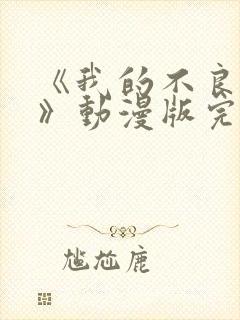 《我的不良
》動漫版完
尴尬鹿